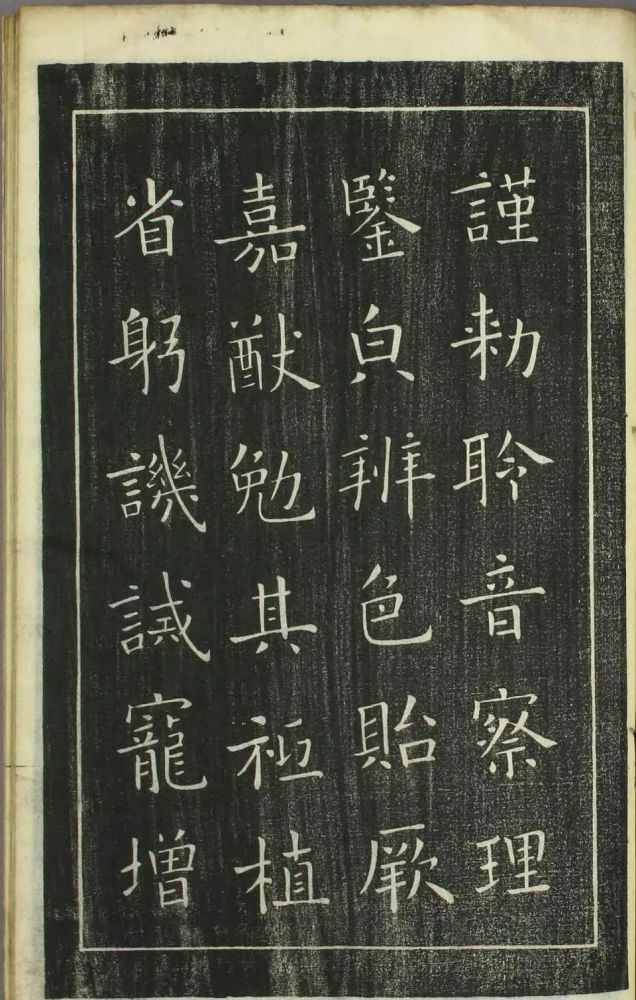 謹勑聆音察理
鑒皃辨色貽厥
嘉猷勉其祗植
省躬譏誡寵增